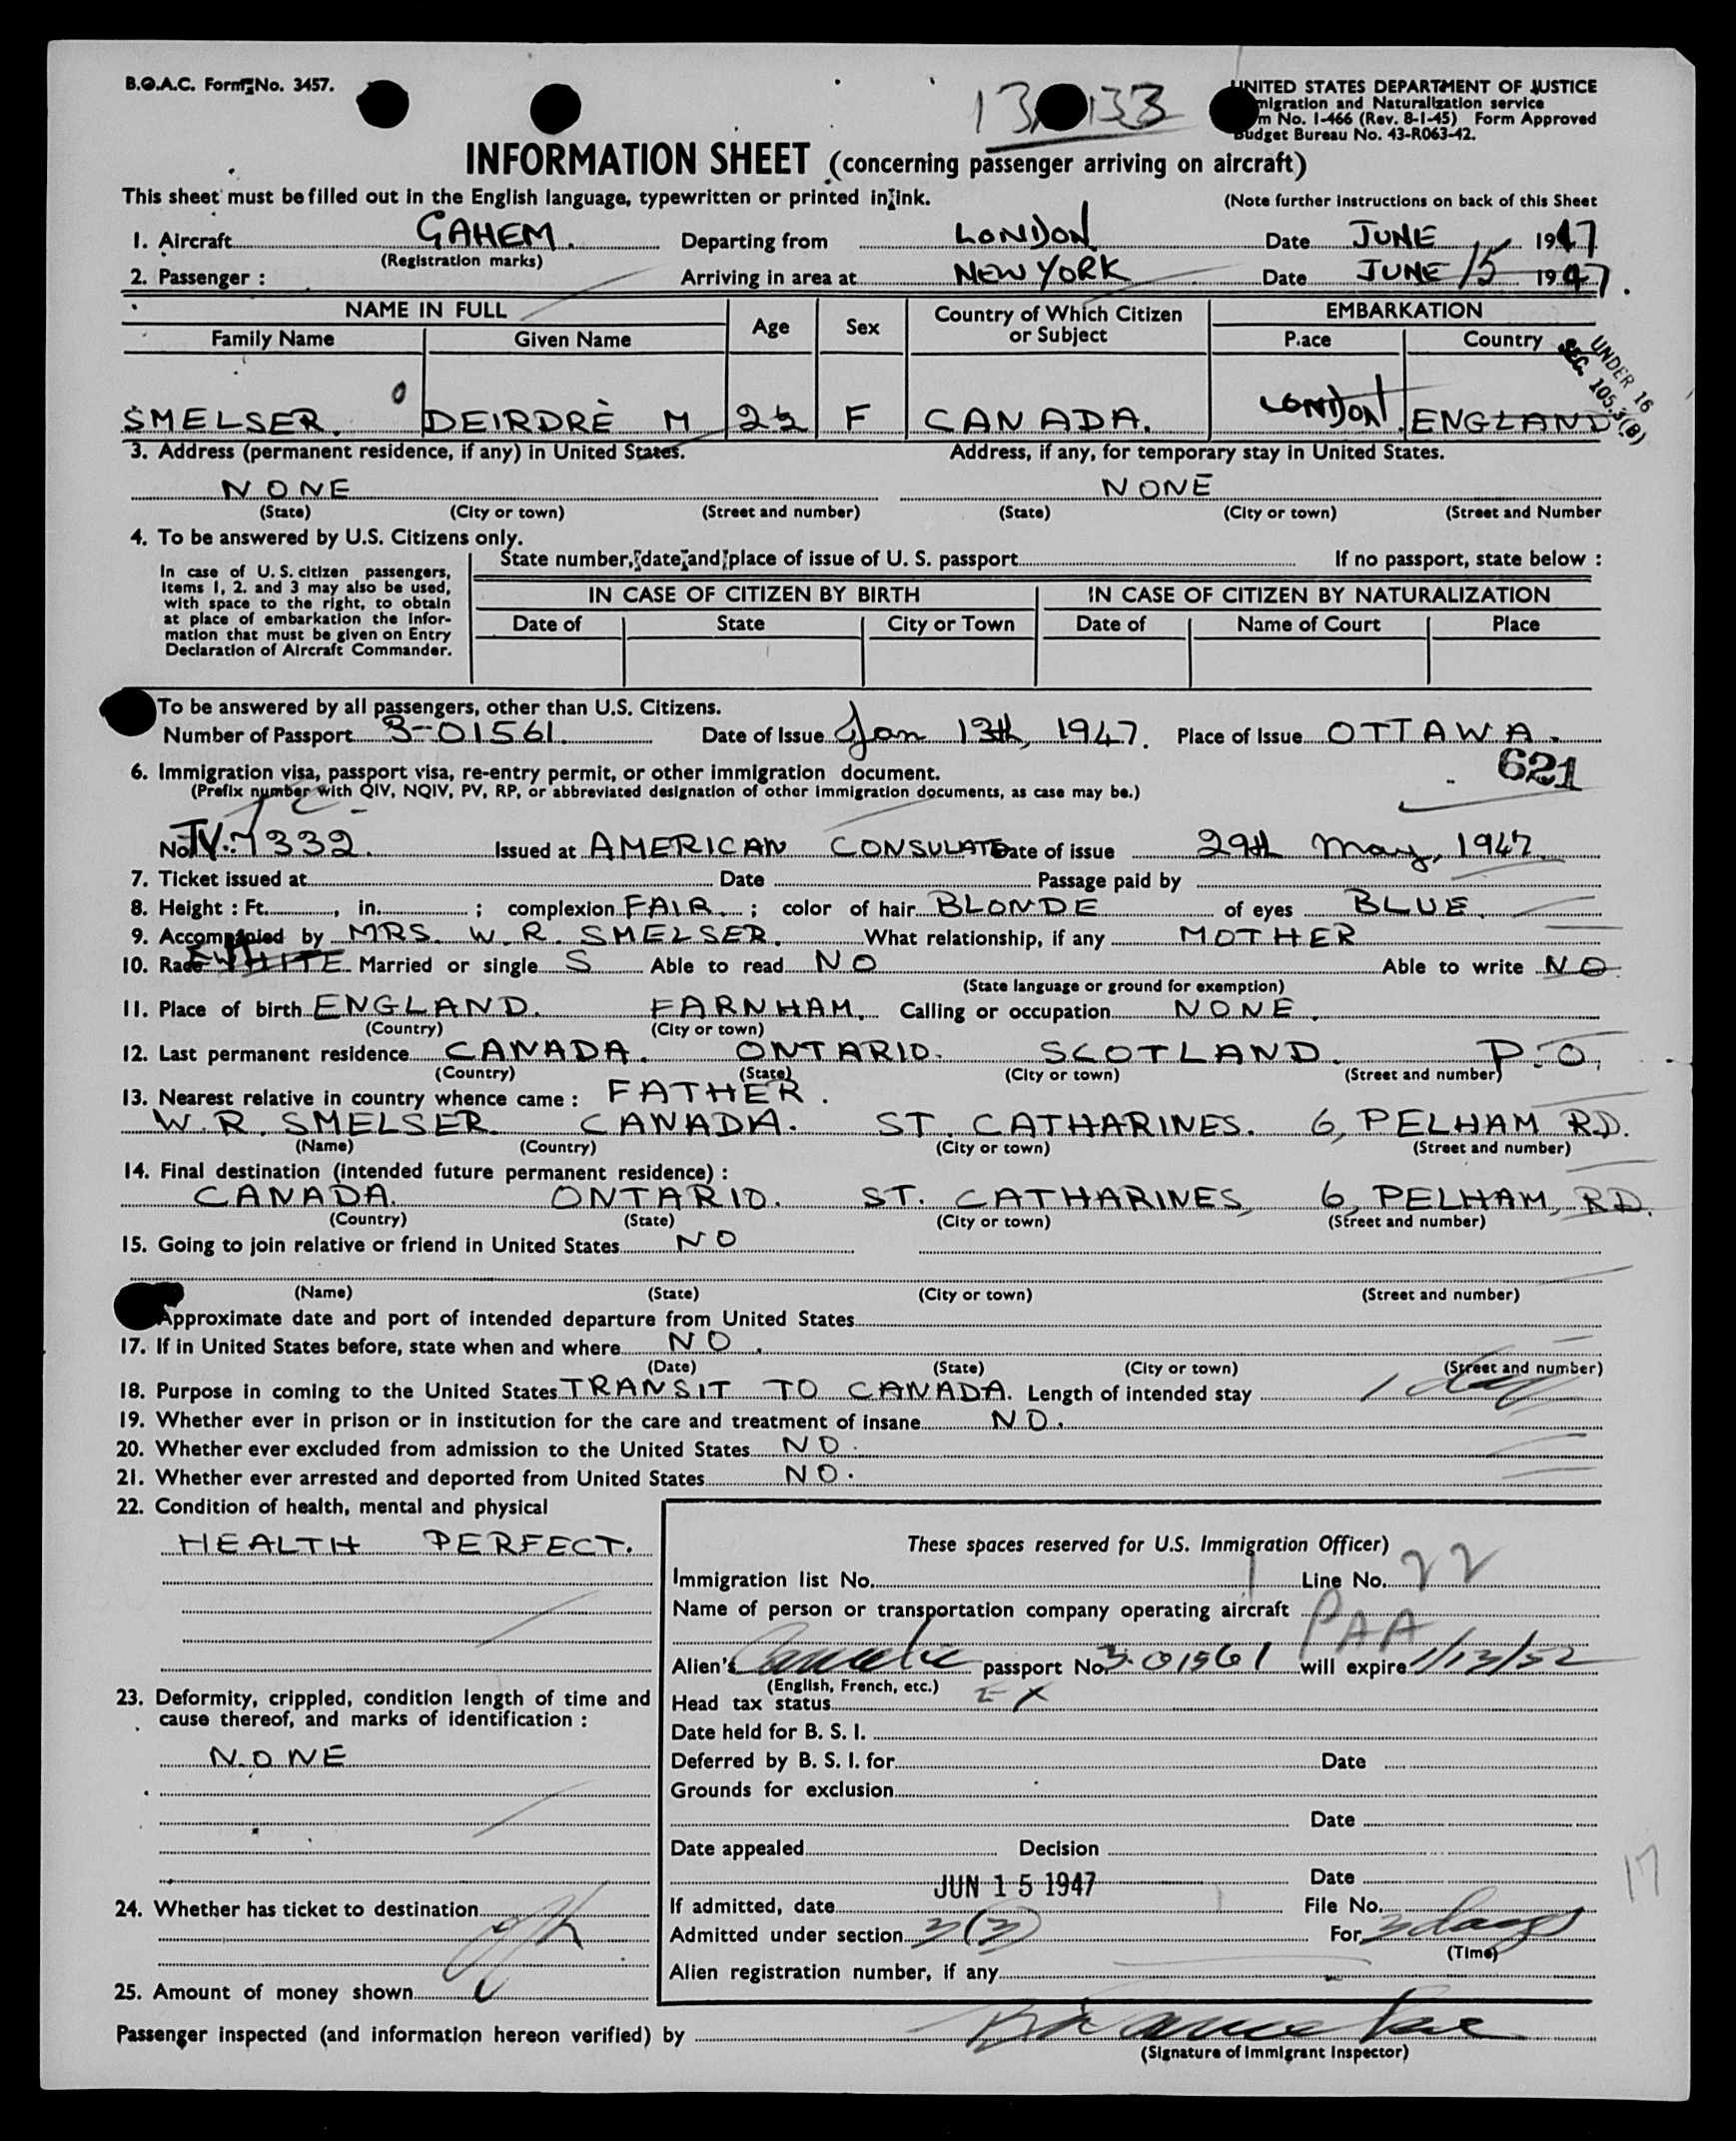 B.O.A.C. Form No. 3457.
UNITED STATES DEPARTMENT OF JUSTICE
migration and Naturalization service
m No. I-466 (Rev. 8-1-45) Form Approved
Budget Bureau No. 43-R063-42.
INFORMATION SHEET (concerning passenger arriving on aircraft)
This sheet must be filled out in the English language, typewritten or printed in ink. (Note further instructions on back of this Sheet
1. Aircraft GAHEM. Departing from LONDON Date JUNE 1947
(Registration marks)
2. Passenger : Arriving in area at NEW YORK Date JUNE 15 1947.
NAME IN FULL Age Sex Country of Which Citizen or Subject EMBARKATION
Family Name Given Name P.ace Country
UNDER 16
SEC. 105.3(B)
SMELSER. DEIRDRE M F CANADA. LONDON. ENGLAND
3. Address (permanent residence, if any) in United States. Address, if any, for temporary stay in United States.
NONE NONE
(State) (City or town) (Street and number) (State) (City or town) (Street and Number
4. To be answered by U.S. Citizens only.
State number, date and place of issue of U. S. passport If no passport, state below :
In case of U. S. citizen passengers,
Items 1, 2. and 3 may also be used,
with space to the right, to obtain
at place of embarkation the Infor-
mation that must be given on Entry
Declaration of Aircraft Commander.
IN CASE OF CITIZEN BY BIRTH IN CASE OF CITIZEN BY NATURALIZATION
Date of State City or Town Date of Name of Court Place
To be answered by all passengers, other than U.S. Citizens.
Number of Passport 3-01561. Date of Issue Jan 13th, 1947. Place of Issue OTTAWA.
621
6. Immigration visa, passport visa, re-entry permit, or other immigration document.
(Prefix number with QIV, NQIV, PV, RP, or abbreviated designation of other immigration documents, as case may be.)
No. TV. 7332. Issued at AMERICAN CONSULATE Date of issue 29th May, 1947.
7. Ticket issued at Date Passage paid by
8. Height : Ft. , in. ; complexion FAIR. ; color of hair BLONDE of eyes BLUE.
9. Accompanied by MRS. W. R. SMELSER. What relationship, if any MOTHER
10. Race WHITE Married or single S Able to read NO Able to write NO
(State language or ground for exemption)
11. Place of birth ENGLAND. FARNHAM. Calling or occupation NONE.
(Country) (City or town)
12. Last permanent residence CANADA. ONTARIO. SCOTLAND. P.O.
(Country) (State) (City or town) (Street and number)
13. Nearest relative in country whence came : FATHER.
W.R. SMELSER CANADA. ST. CATHARINES. 6, PELHAM RD.
(Name) (Country) (City or town) (Street and number)
14. Final destination (intended future permanent residence) :
CANADA. ONTARIO. ST. CATHARINES, 6, PELHAM, RD.
(Country) (State) (City or town) (Street and number)
15. Going to join relative or friend in United States NO
(Name) (State) (City or town) (Street and number)
Approximate date and port of intended departure from United States
17. If in United States before, state when and where NO.
(Date) (State) (City or town) (Street and number)
18. Purpose in coming to the United States TRANSIT TO CANADA. Length of intended stay 1 day
19. Whether ever in prison or in institution for the care and treatment of insane NO.
20. Whether ever excluded from admission to the United States NO.
21. Whether ever arrested and deported from United States NO.
22. Condition of health, mental and physical
HEALTH PERFECT.
These spaces reserved for U.S. Immigration Officer)
Immigration list No. 1 Line No. 22
Name of person or transportation company operating aircraft PAA
Alien's passport No. 3-01561 will expire 1/13/52
(English, French, etc.)
23. Deformity, crippled, condition length of time and
cause thereof, and marks of identification :
NONE
Head tax status EX
Date held for B. S. I.
Deferred by B. S. I. for Date
Grounds for exclusion
Date
Date appealed Decision
Date
JUN 15 1947
17
24. Whether has ticket to destination
If admitted, date File No.
Admitted under section 3(3) For 3 days
(Time)
Alien registration number, if any
25. Amount of money shown
Passenger inspected (and information hereon verified) by
(Signature of Immigrant Inspector)